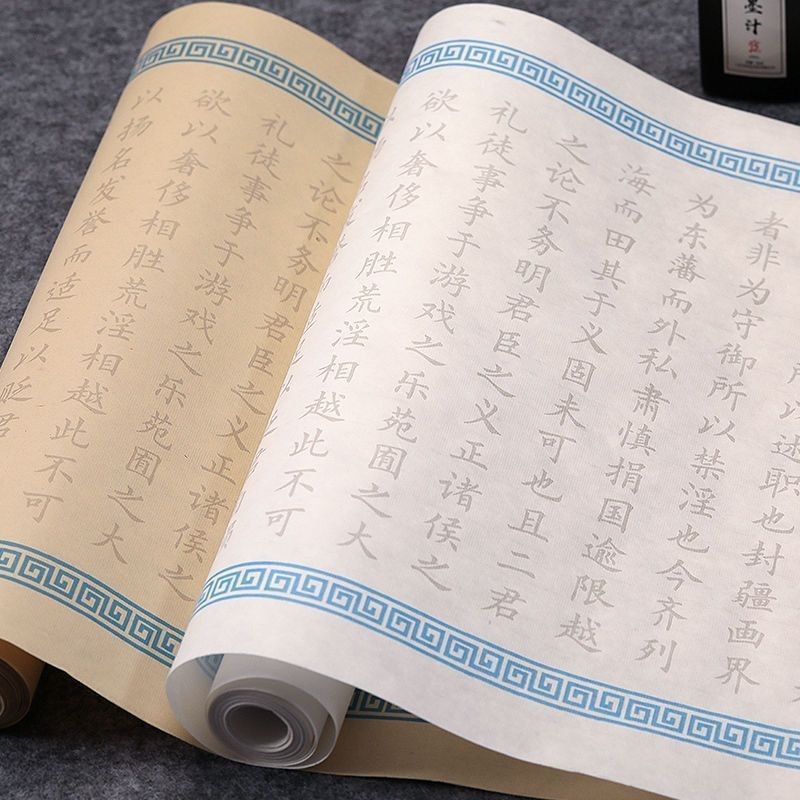 墨汁
以述职也封疆画界
者非为守御所以禁淫也今齐列
为东藩而外私肃慎捐国逾限越
海而田其于义固未可也且二君
之论不务明君臣之义正诸侯之
礼徒事争于游戏之乐苑囿之大
欲以奢侈相胜荒淫相越此不可
之论不务明君臣之义正诸侯之
礼徒事争于游戏之乐苑囿之大
欲以奢侈相胜荒淫相越此不可
以扬名发誉而适足以贬君